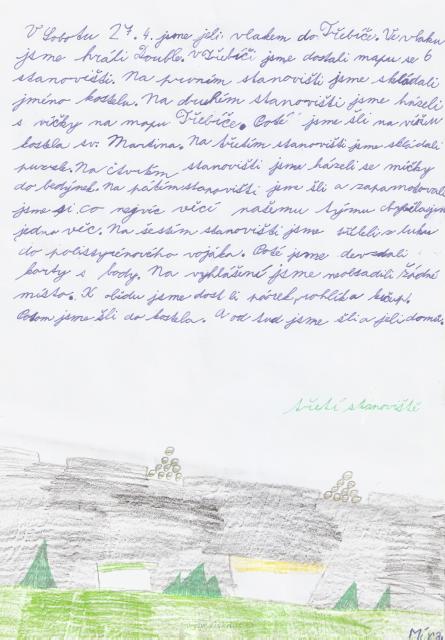 V Sobotu 27. 4. jsme jeli vlakem do Třebíče. Ve vlaku
jsme hráli Double. V Třebíči jsme dostali mapu se 6
stanovišti. Na prvním stanovišti jsme skládali
jméno kostela. Na druhém stanovišti jsme házeli
s víčky na mapu Třebíče. Poté jsme šli na věž
kostela sv. Martina. Na třetím stanovišti jsme skládali
puzzle. Na čtvrtém stanovišti jsme házeli se míčky
do bedýnek. Na pátém stanovišti jsme šli a zapamatovali
jsme si co nejvíc věcí našemu týmu chyběla jen
jedna věc. Na šestém stanovišti jsme stříleli z luku
do polistyrénového vojáka. Poté jsme
karty s body. Na vyhlášení jsme neobsadili žádné
místo. K obědu jsme dostali párek, rohlík a kečup.
Potom jsme šli do kostela. A od tud jsme šli a jeli domů.
třetí stanoviště